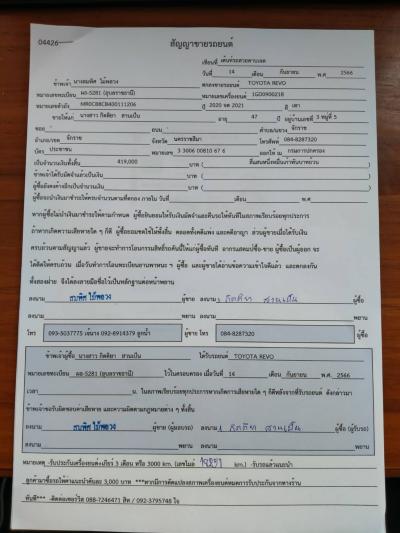 04426
สัญญาขายรถยนต์
เขียนที่ เต็นท์รถสวยตาบเจต
วันที่ 14 เดือน กันยายน พ.ศ. 2566
ข้าพเจ้า นางสมพิศ ไม้พลวง ตกลงขายรถยนต์ TOYOTA REVO
หมายเลขทะเบียน ผอ-5281 (อุบลราชธานี) หมายเลขเครื่องยนต์ 1GD0900218
หมายเลขตัวถัง MR0CB8CB400111206 ปี 2020 จด 2021 สี เทา
ขายให้แก่ นางสาว กิตติยา สานเป็น อายุ 47 ปี อยู่บ้านเลขที่ 3 หมู่ที่ 5
ซอย - ถนน ตำบล/แขวง จักราช
อำเภอ/เขต จักราช จังหวัด นครราชสีมา โทรศัพท์ 084-8287320
บัตร ประชาชน หมายเลข 3 3006 00810 67 6 ออกให้ ณ กรมการปกครอง
เป็นจำนวนเงินทั้งสิ้น 419,000 บาท ( สี่แสนหนึ่งหมื่นเก้าพันบาทถ้วน )
ข้าพเจ้าได้รับมัดจำแล้วเป็นเงิน บาท ( )
ผู้ซื้อยังคงค้างอีกเป็นจำนวนเงิน บาท ( )
ผู้ซื้อจะนำเงินมาชำระให้ครบจำนวนตามที่ตกลง ภายใน วันที่ เดือน พ.ศ.
หากผู้ซื้อไม่นำเงินมาชำระให้ตามกำหนด ผู้ซื้อยินยอมให้ริบเงินมัดจำและคืนรถให้ทันทีในสภาพเรียบร้อยทุกประการ
ถ้าหากเกิดความเสียหายใด ๆ ก็ดี ผู้ซื้อยอมชดใช้ให้ทั้งสิ้น ตลอดทั้งคดีแพ่ง และคดีอาญา ส่วนผู้ขายเมื่อได้รับเงิน
ครบถ้วนตามสัญญาแล้ว ผู้ขายจะทำการโอนกรรมสิทธิ์รถคันนี้ให้แก่ผู้ซื้อทันที อากรแสตมป์ซื้อ-ขาย ผู้ซื้อเป็นผู้ออก จะ
ได้ติดให้ครบถ้วน เมื่อวันทำการโอนทะเบียนยานพาหนะ ฯ ผู้ซื้อ และผู้ขายได้อ่านข้อความเข้าใจดีแล้ว และตกลงกัน
ทั้งสองฝ่าย จึงได้ลงลายมือชื่อไว้เป็นหลักฐานต่อหน้าพยาน
ลงนาม สมพิศ ไม้พลวง ผู้ขาย ลงนาม กิตติยา สานเป็น ผู้ซื้อ
โทร 093-5037775 เจ้นาง 092-8914379 ลูกน้ำ ผู้ขาย โทร 084-8287320 ผู้ซื้อ
ข้าพเจ้าผู้ซื้อ นางสาว กิตติยา สานเป็น ได้รับรถยนต์ TOYOTA REVO
หมายเลขทะเบียน ผอ-5281 (อุบลราชธานี) ไว้ในครอบครอง เมื่อวันที่ 14 เดือน กันยายน พ.ศ. 2566
เวลา น. ในสภาพเรียบร้อยทุกประการหากเกิดการเสียหายใด ๆ ก็ดีหลังจากที่รับรถยนต์ ดังกล่าวมา
ข้าพเจ้าขอรับผิดชอบค่าเสียหาย และความผิดตามกฎหมายต่าง ๆ ทั้งสิ้น
ลงนาม สมพิศ ไม้พลวง ผู้ขาย (ผู้มอบรถ) ลงนาม กิตติยา สานเป็น ผู้ซื้อ (ผู้รับรถ)
ลงนาม พยาน ลงนาม พยาน
หมายเหตุ -รับประกันเครื่องยนต์/เกียร์ 3 เดือน หรือ 3000 km. (เลขไมล์ km.) -รับรถแล้วแนะนำ
ลูกค้ามาซื้อรถให้ค่าแนะนำคันละ 3,000 บาท ***หากมีการดัดแปลงสภาพเครื่องยนต์หมดการรับประกันจากทางร้าน
ทันที*** -ติดต่อเซอร์วิส 088-7246471 สิท / 092-3795748 ใจ